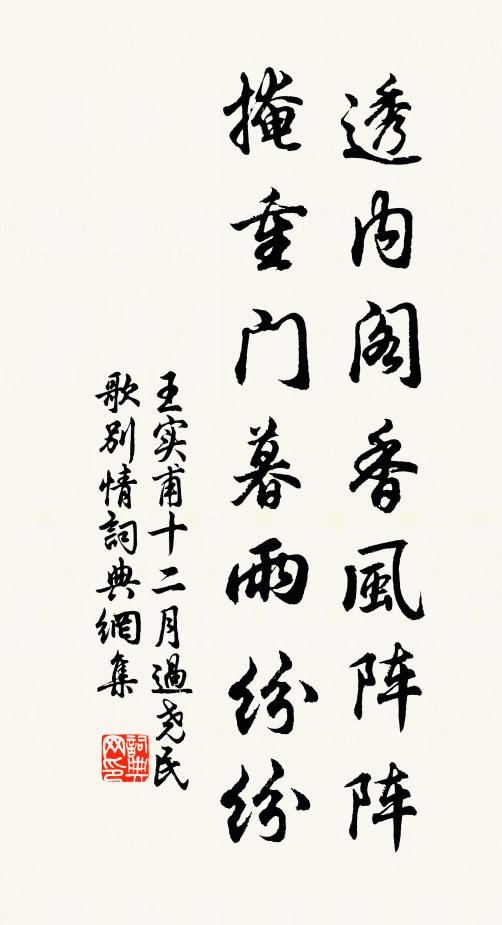 透内阁香風阵阵
掩重门暮雨纷纷
王实甫十二月過尧民
歌别情詞典網集
詞典网印